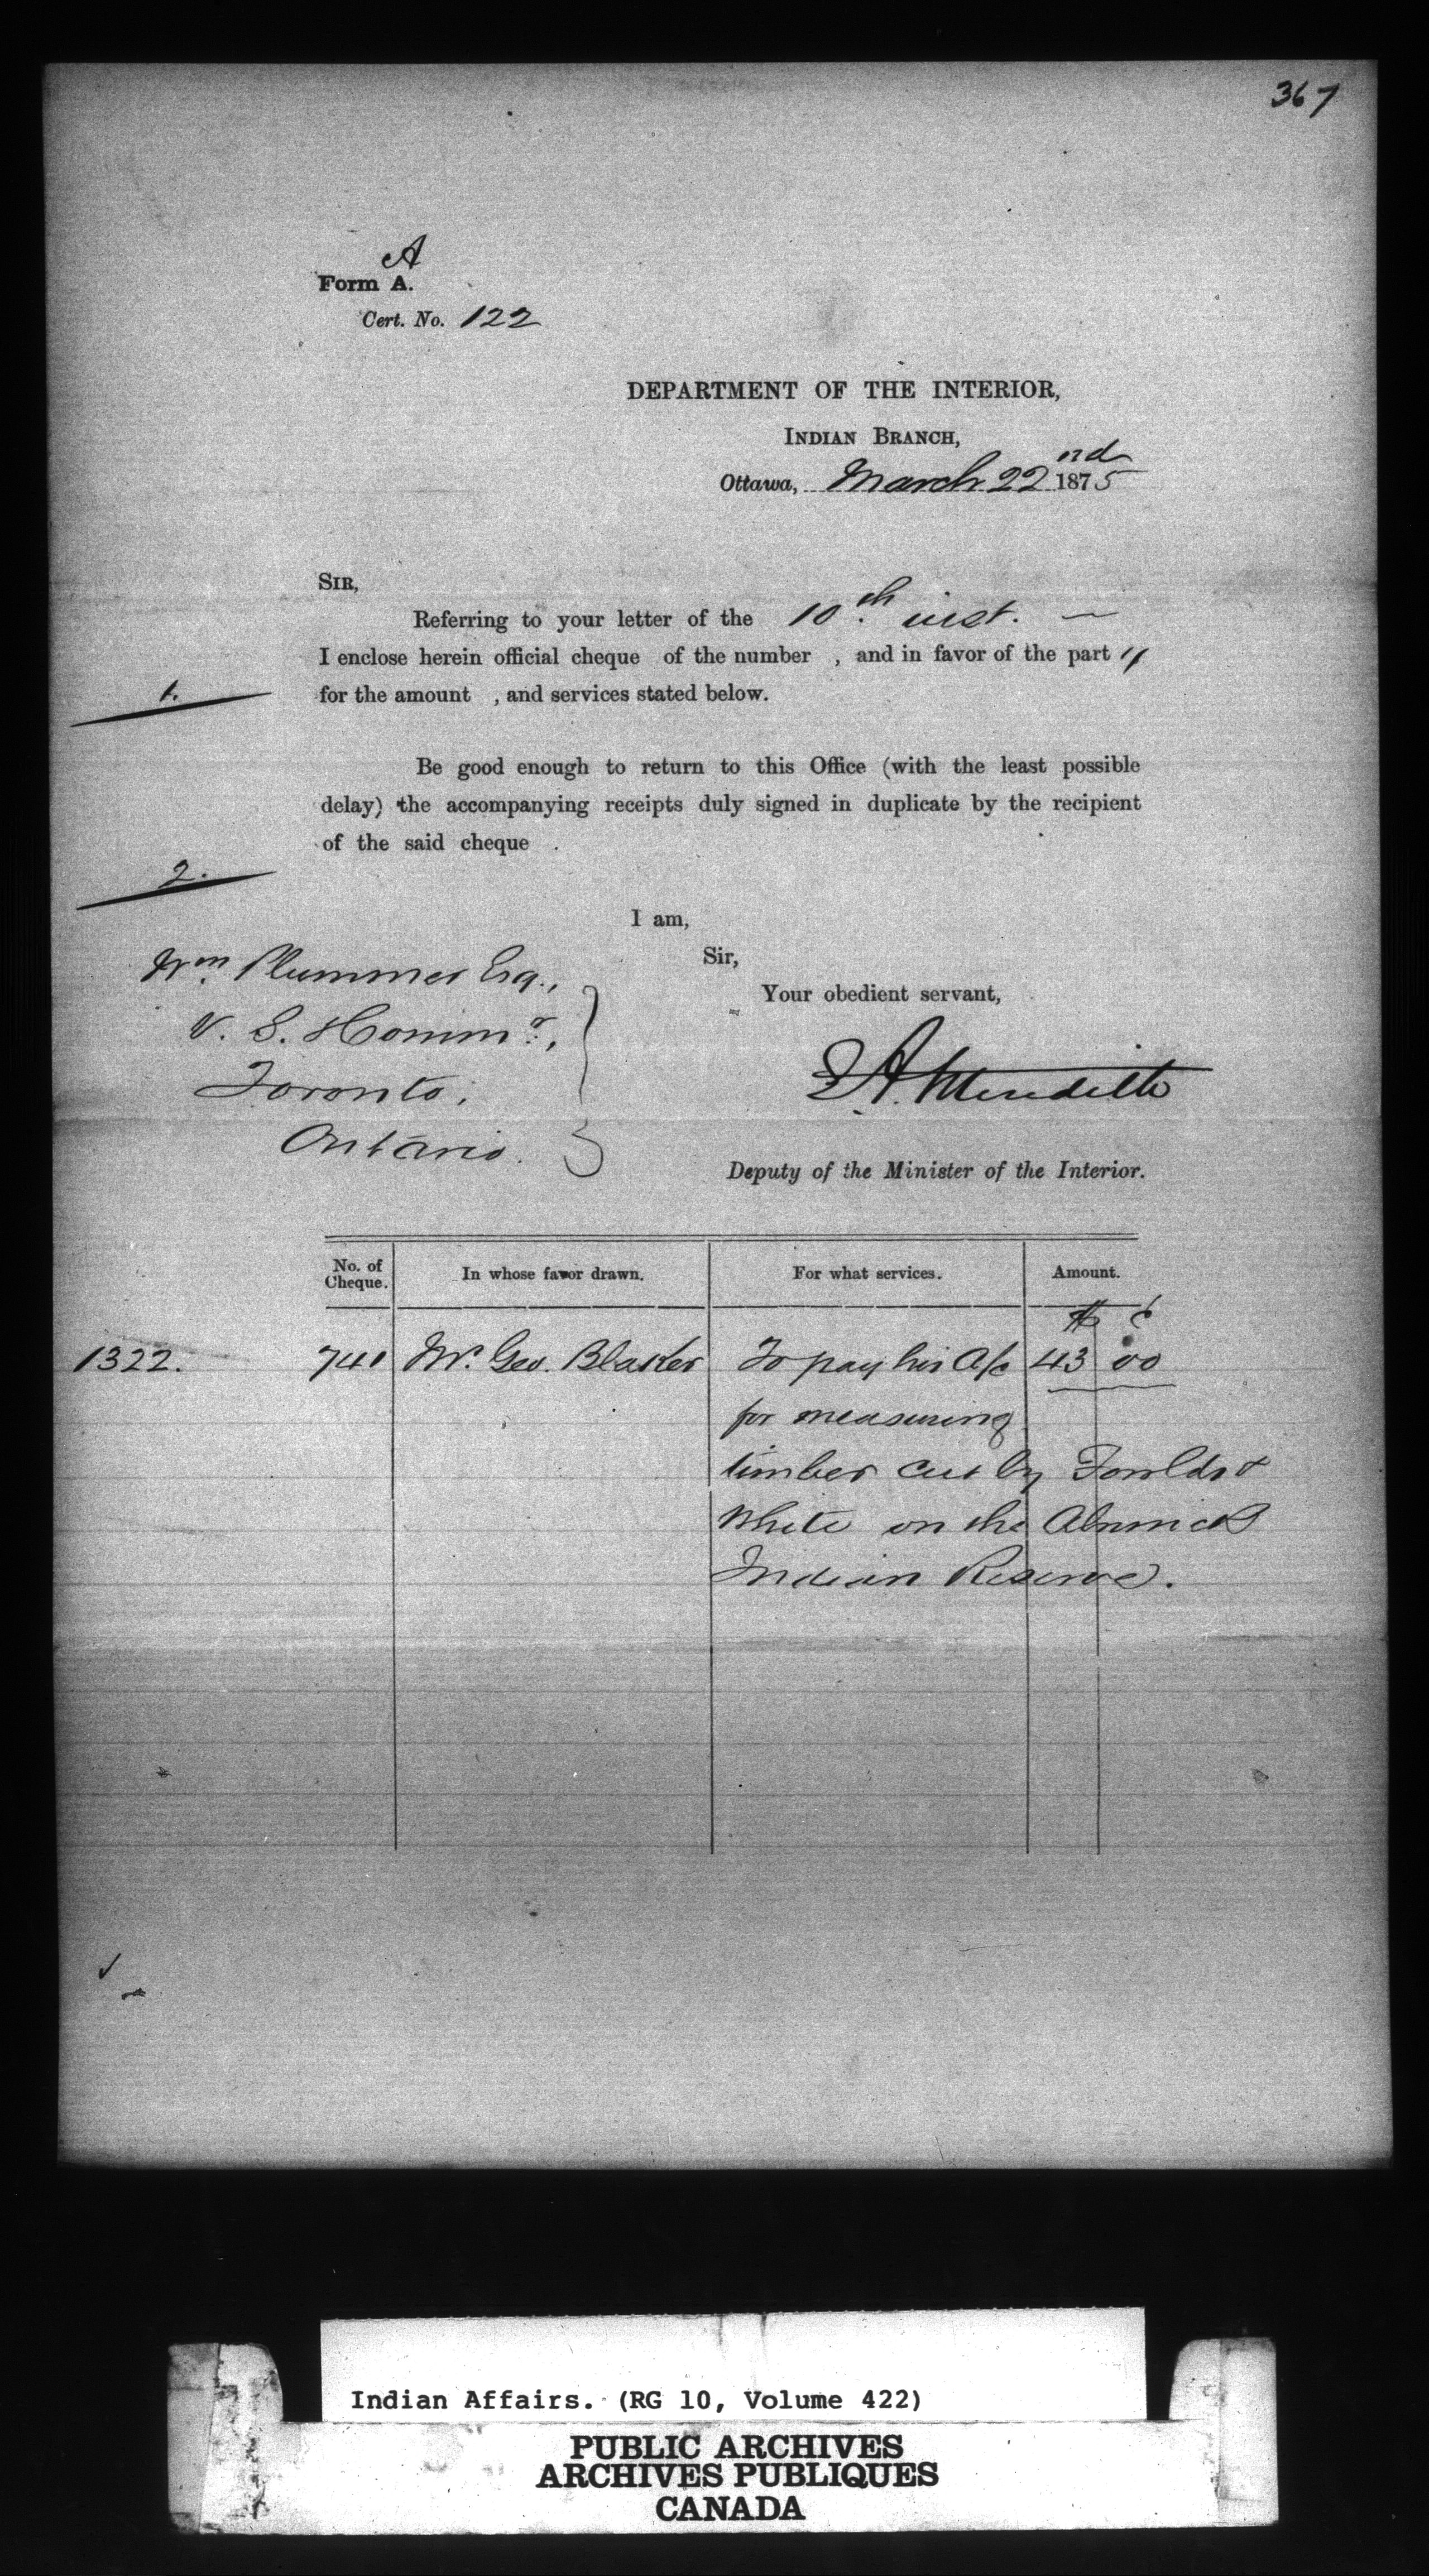 367
A
Form A.
Cert. No. 122
DEPARTMENT OF THE INTERIOR,
INDIAN BRANCH,
Ottawa, March 22nd 1875
SIR,
Referring to your letter of the 10th. inst. —
I enclose herein official cheque of the number , and in favor of the party
1.
for the amount , and services stated below.
Be good enough to return to this Office (with the least possible
delay) the accompanying receipts duly signed in duplicate by the recipient
of the said cheque .
2.
I am,
Sir,
Your obedient servant,
Wm. Plummer Esq.,
V. S. Commr.,
Toronto,
Ontario.
E.A. Meredith
Deputy of the Minister of the Interior.
No. of Cheque. In whose favor drawn. For what services. Amount.
$ c
1322. 741 Mr. Geo. Blaker To pay his a/c 43 00
for measuring
timber cut by Foulds &
White on the Alnwick
Indian Reserve.
Indian Affairs. (RG 10, Volume 422)
PUBLIC ARCHIVES
ARCHIVES PUBLIQUES
CANADA